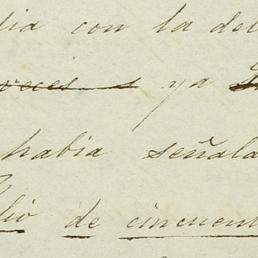 lia con la del
ya
habia señala
lio de cincuent